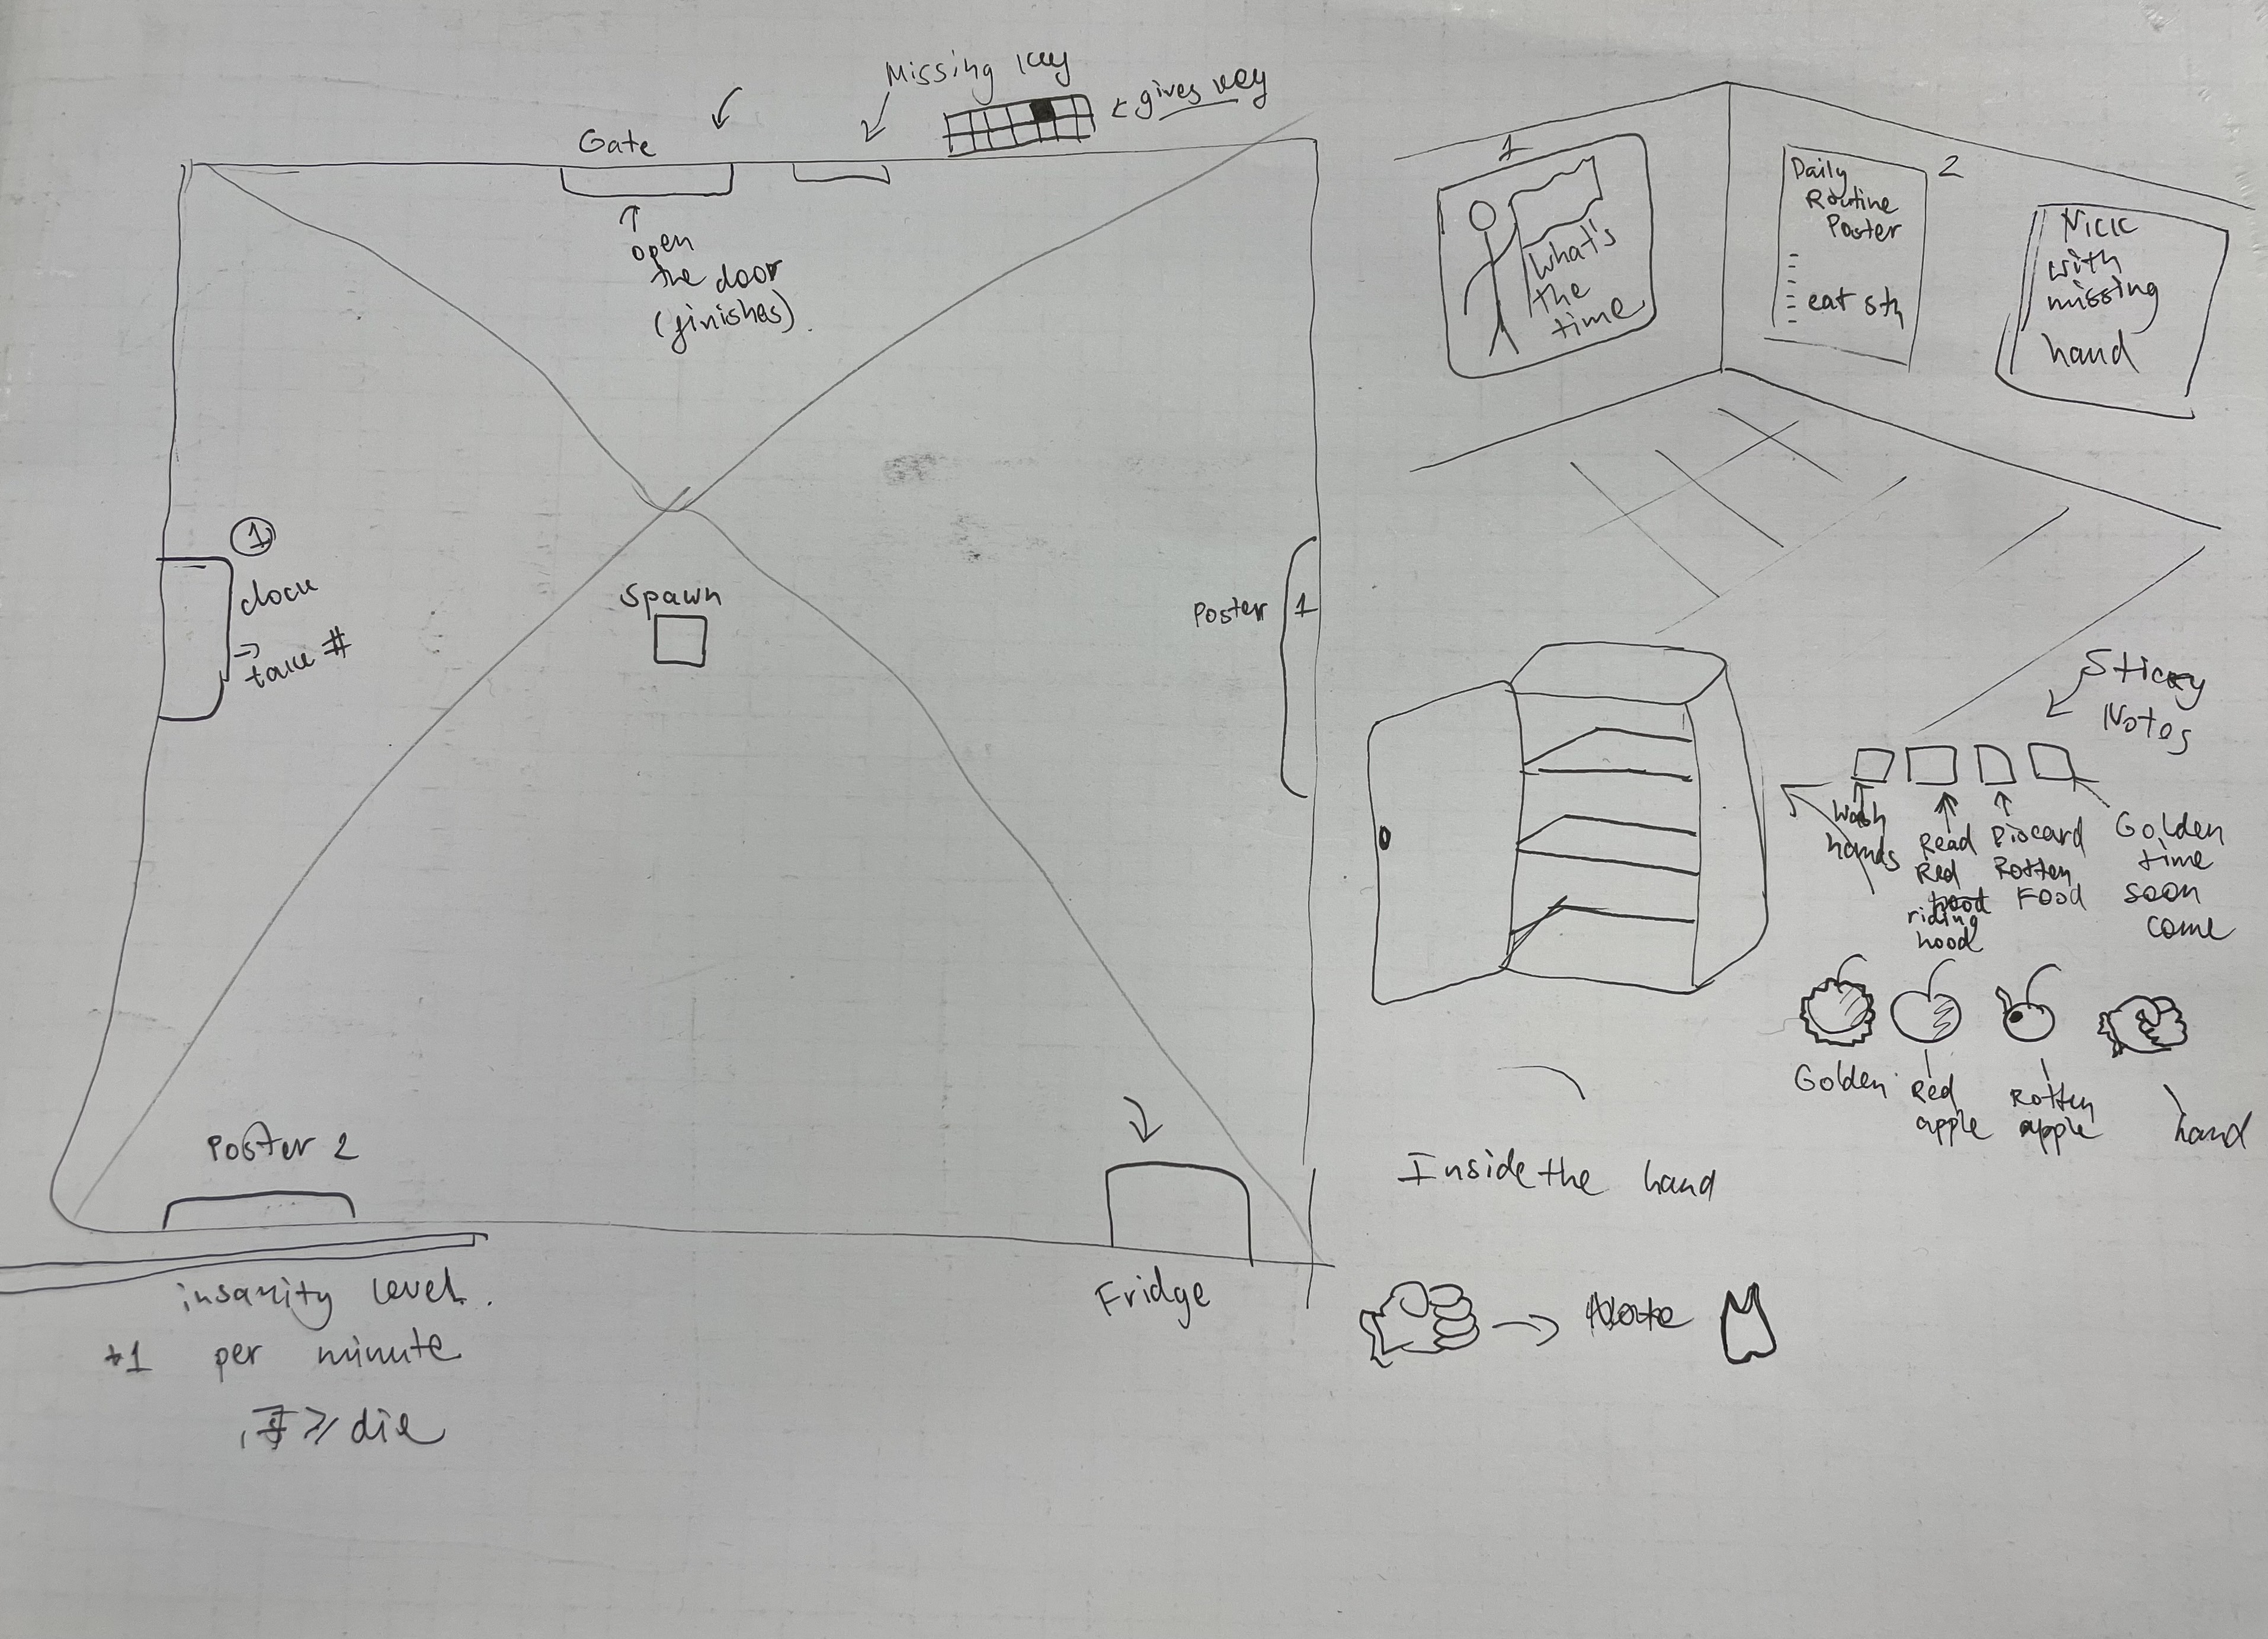 Missing key
← gives key
Gate
↑
open
the door
(finishes).
1
clock
→
take #
Spawn
Poster
1
Poster 2
Fridge
insanity level.
+1 per minute
≥ die
1
What's
the
time
Daily
Routine
Poster
eat sth
2
Nick
with
missing
hand
Sticky
Notes
Wash
hands
Read
Red
riding
hood
Discard
Rotten
Food
Golden
time
soon
come
Golden
Red
apple
Rotten
apple
hand
Inside the hand